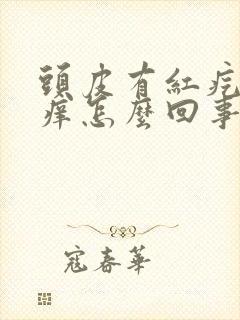 頭皮有紅疙
癢怎麼回事
寇春華